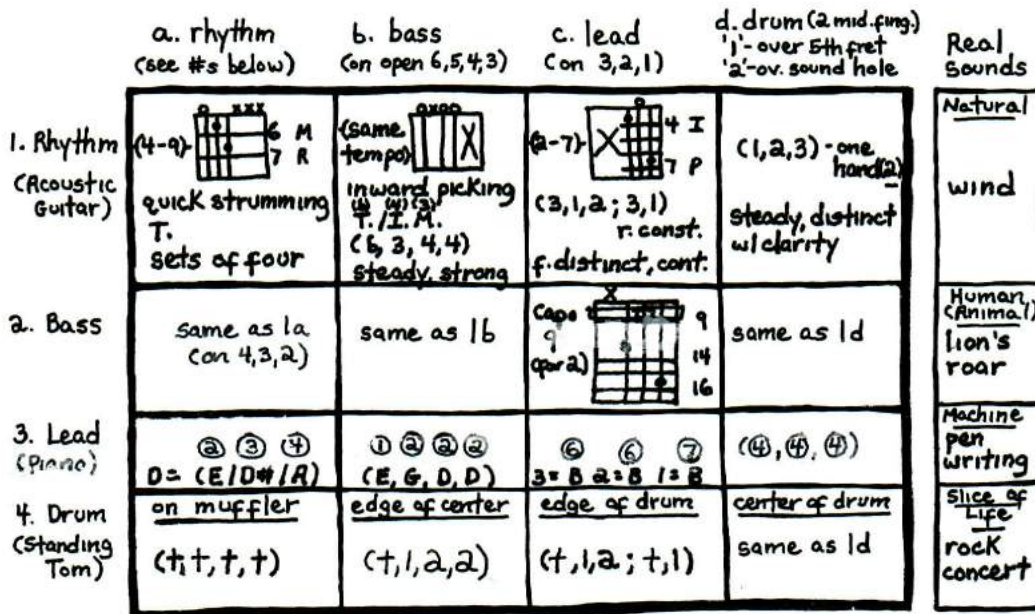 a. rhythm
(see #s below)
b. bass
(on open 6,5,4,3)
c. lead
(on 3,2,1)
d. drum (2 mid. fing.)
'1'- over 5th fret
'2'-ov. sound hole
Real
Sounds
1. Rhythm
(Acoustic
Guitar)
o xxx
(4-9)
6 M
7 R
quick strumming
T.
sets of four
oxoo
(same
tempo)
X
inward picking
T./I. M.
(6, 3, 4, 4)
steady, strong
o
(2-7)
X
4 I
7 P
(3,1,2; 3,1)
r. const.
f. distinct, cont.
(1,2,3) - one
hand(2)
steady, distinct
w/ clarity
Natural
wind
2. Bass
same as 1a
(on 4,3,2)
same as 1b
X
Capo
9
9
(for 2)
14
16
same as 1d
Human,
(Animal)
lion's
roar
3. Lead
(Piano)
2 3 4
D= (E/D#/A)
1 2 2 2
(E, G, D, D)
6 6 7
3=B 2=B 1=B
(4, 4, 4)
Machine
pen
writing
4. Drum
(Standing
Tom)
on muffler
(t, t, t, t)
edge of center
(t,1,2,2)
edge of drum
(t,1,2; t,1)
center of drum
same as 1d
Slice of
Life
rock
concert